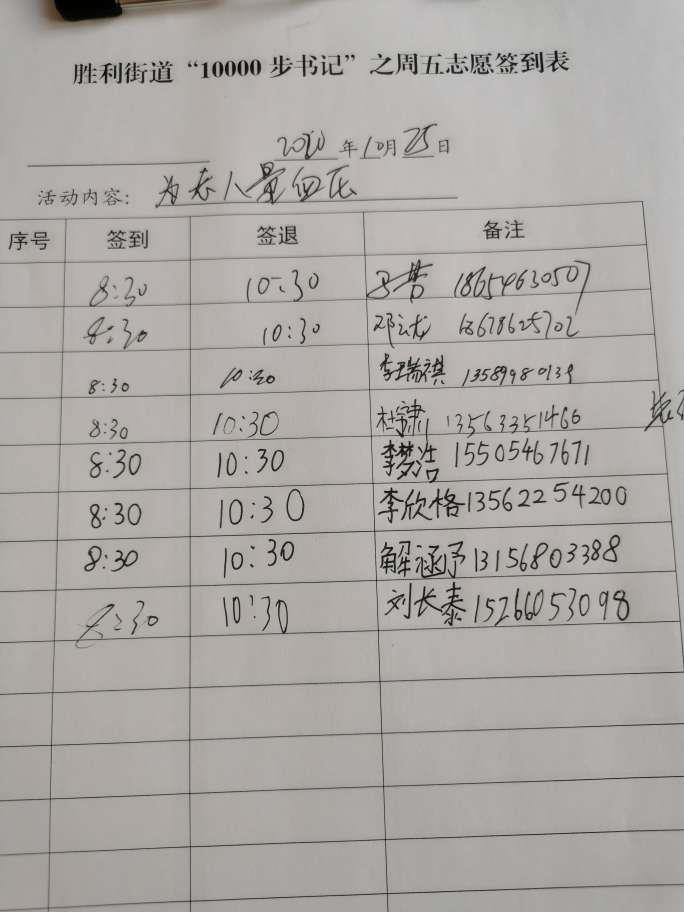 胜利街道“10000步书记”之周五志愿签到表
2020年10月25日
活动内容：为老人量血压
序号 签到 签退 备注
8:30 10:30 18654630507
8:30 10:30 邓云龙 18678625702
8:30 10:30 李瑞祺 13589980139
8:30 10:30 杜潇 13563351466
8:30 10:30 李梦浩 15505467671
8:30 10:30 李欣格 13562254200
8:30 10:30 解涵予 13156803388
8:30 10:30 刘长泰 15266053098